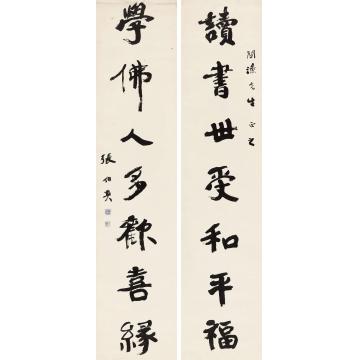 先生正之
讀書世受和平福
學佛人多歡喜緣
張伯英